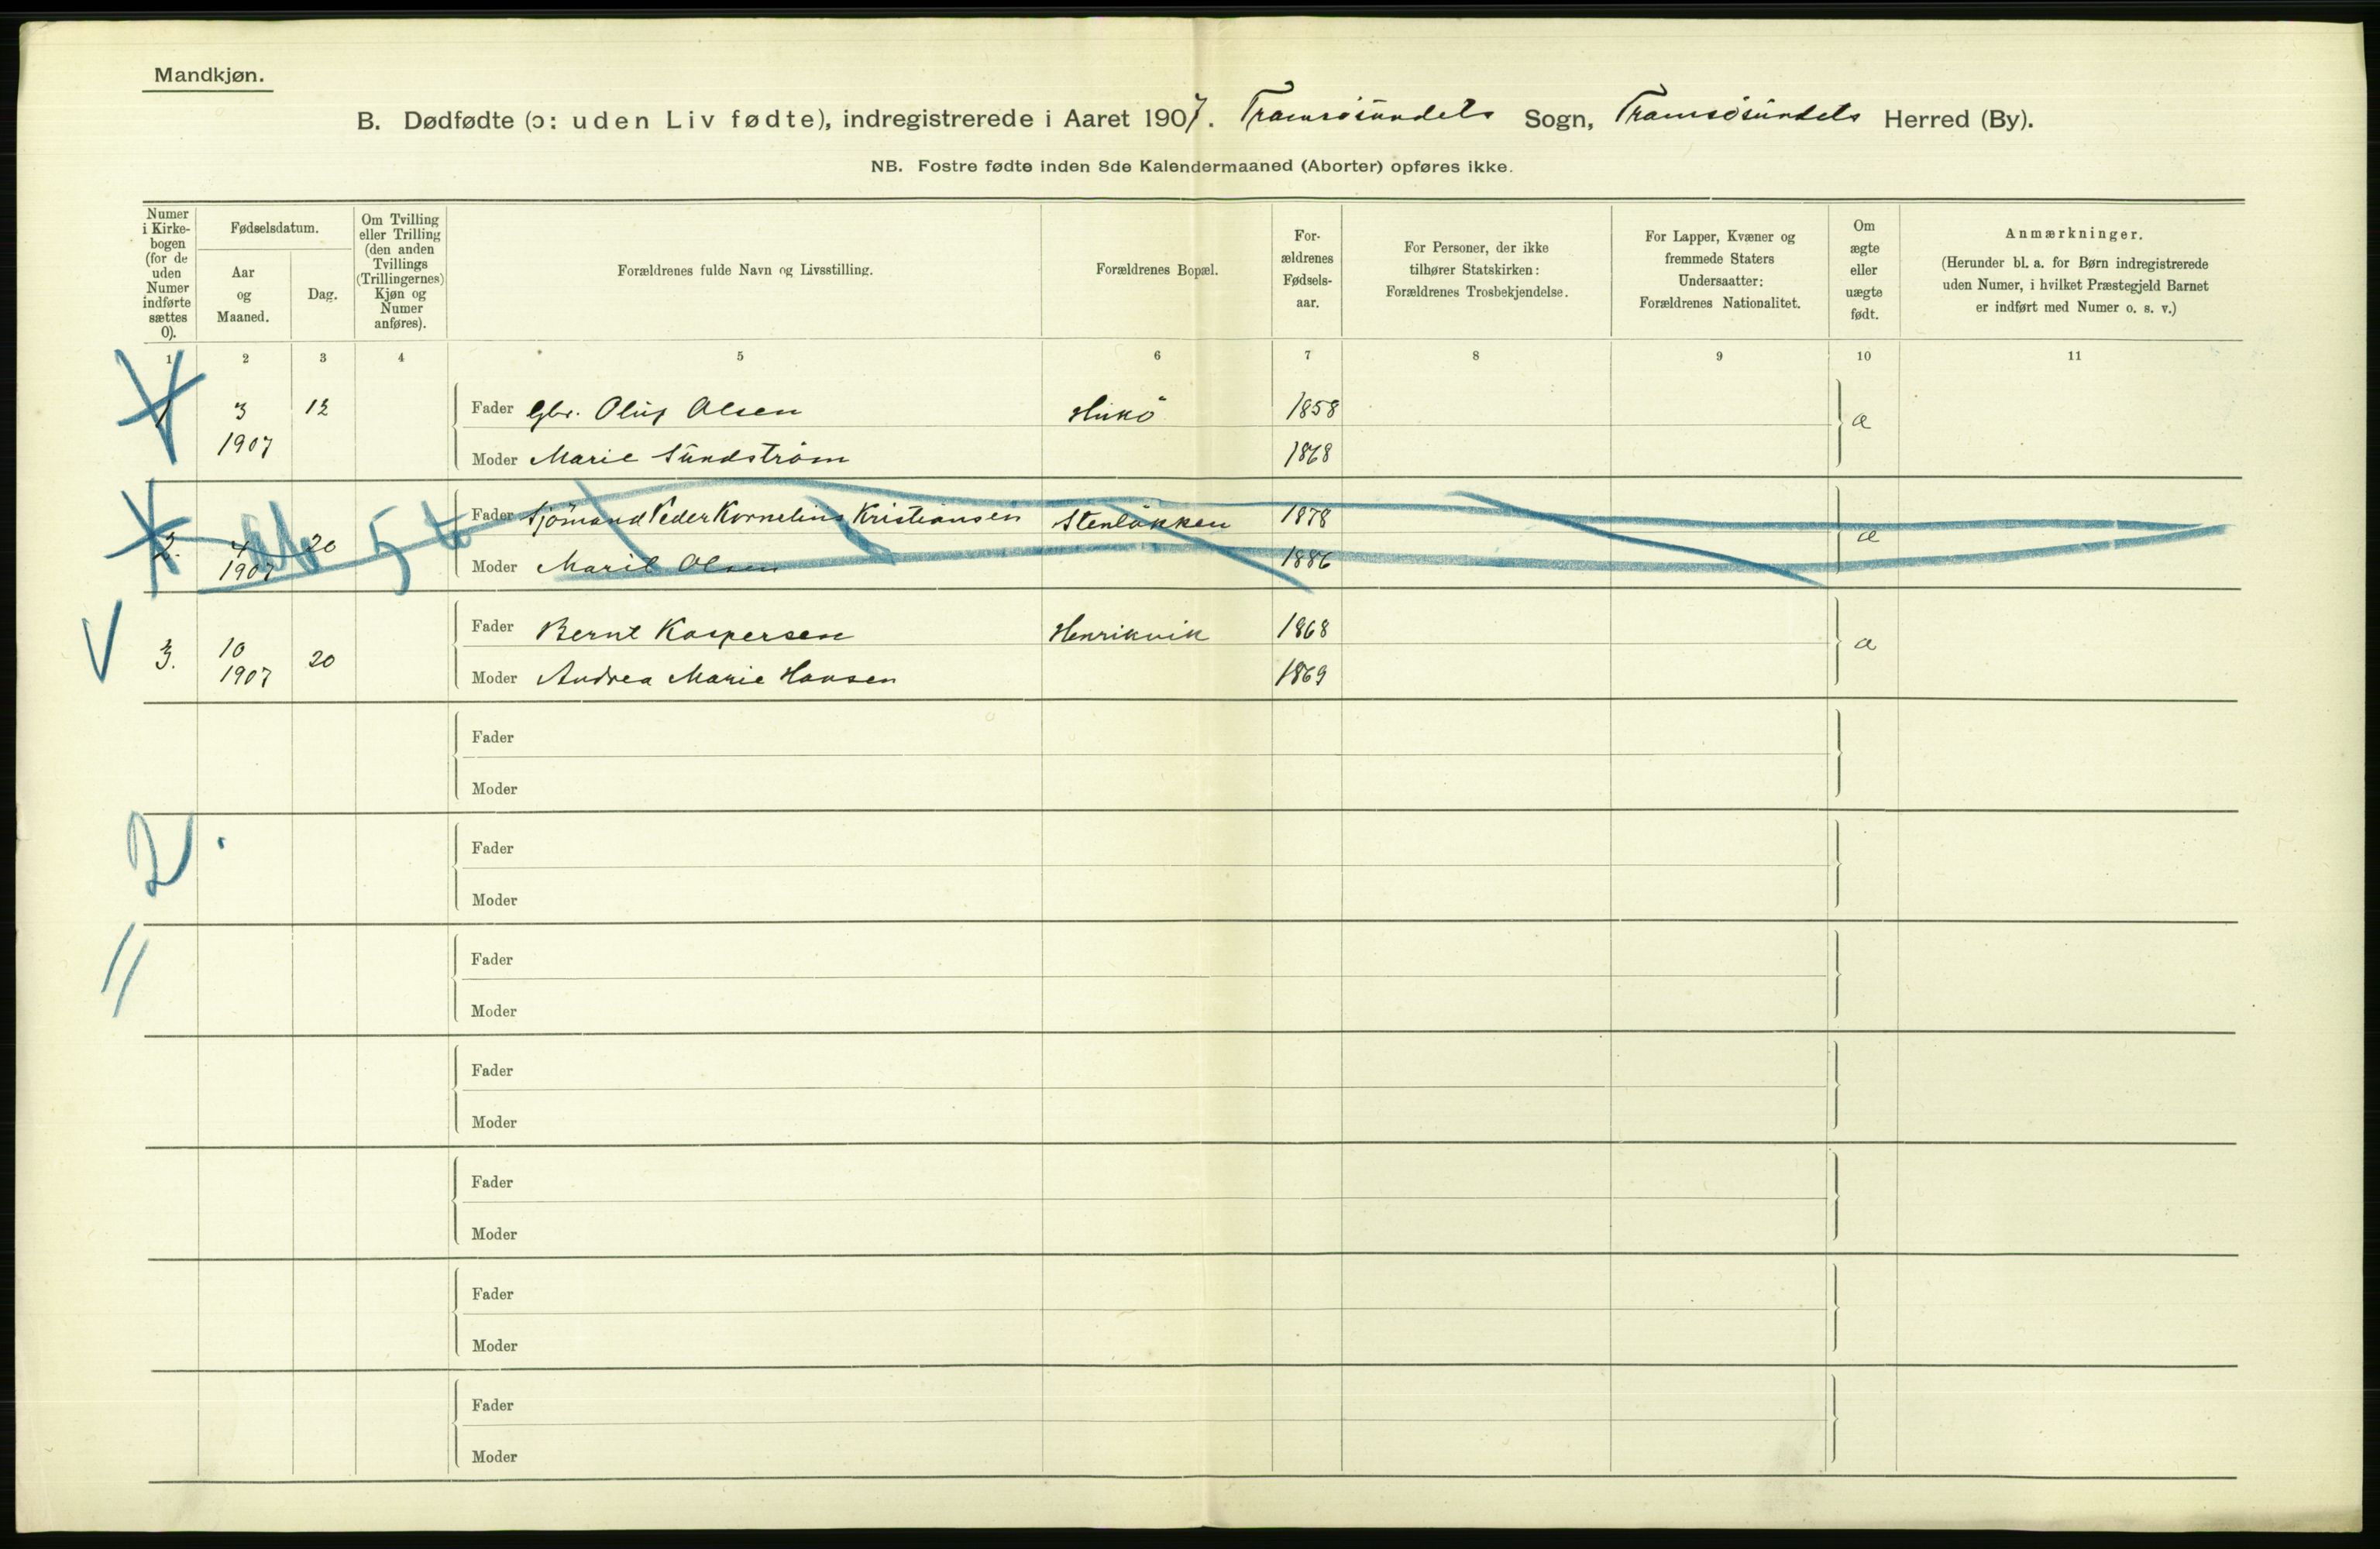 Mandkjøn.
B. Dødfødte (ɔ: uden Liv fødte), indregistrerede i Aaret 1907. Tromsøsundets Sogn, Tromsøsundets Herred (By).
NB. Fostre fødte inden 8de Kalendermaaned (Aborter) opføres ikke.
Numer
i Kirke-
bogen
(for de
uden
Numer
indførte
sættes
0).
Fødselsdatum.
Aar
og
Maaned.
Dag.
Om Tvilling
eller Trilling
(den anden
Tvillings
(Trillingernes)
Kjøn og
Numer
anføres).
Forældrenes fulde Navn og Livsstilling.
Forældrenes Bopæl.
For-
ældrenes
Fødsels-
aar.
For Personer, der ikke
tilhører Statskirken:
Forældrenes Trosbekjendelse.
For Lapper, Kvæner og
fremmede Staters
Undersaatter:
Forældrenes Nationalitet.
Om
ægte
eller
uægte
født.
Anmærkninger.
(Herunder bl. a. for Børn indregistrerede
uden Numer, i hvilket Præstegjeld Barnet
er indført med Numer o. s. v.)
1 2 3 4 5 6 7 8 9 10 11
1 3 12 Fader Gbr. Oluf Olsen 1858 æ
1907 Moder Marie Sundström 1868
2. 4 20 Fader Sjömand Peder Kornelius Kristiansen Stenløkken 1878 æ
1907 Moder Marit Olsen 1886
3. 10 20 Fader Bernt Kaspersen Henrikvik 1868 æ
1907 Moder Andrea Marie Hansen 1869
Fader
Moder
2.
Fader
Moder
Fader
Moder
Fader
Moder
Fader
Moder
Fader
Moder
Fader
Moder